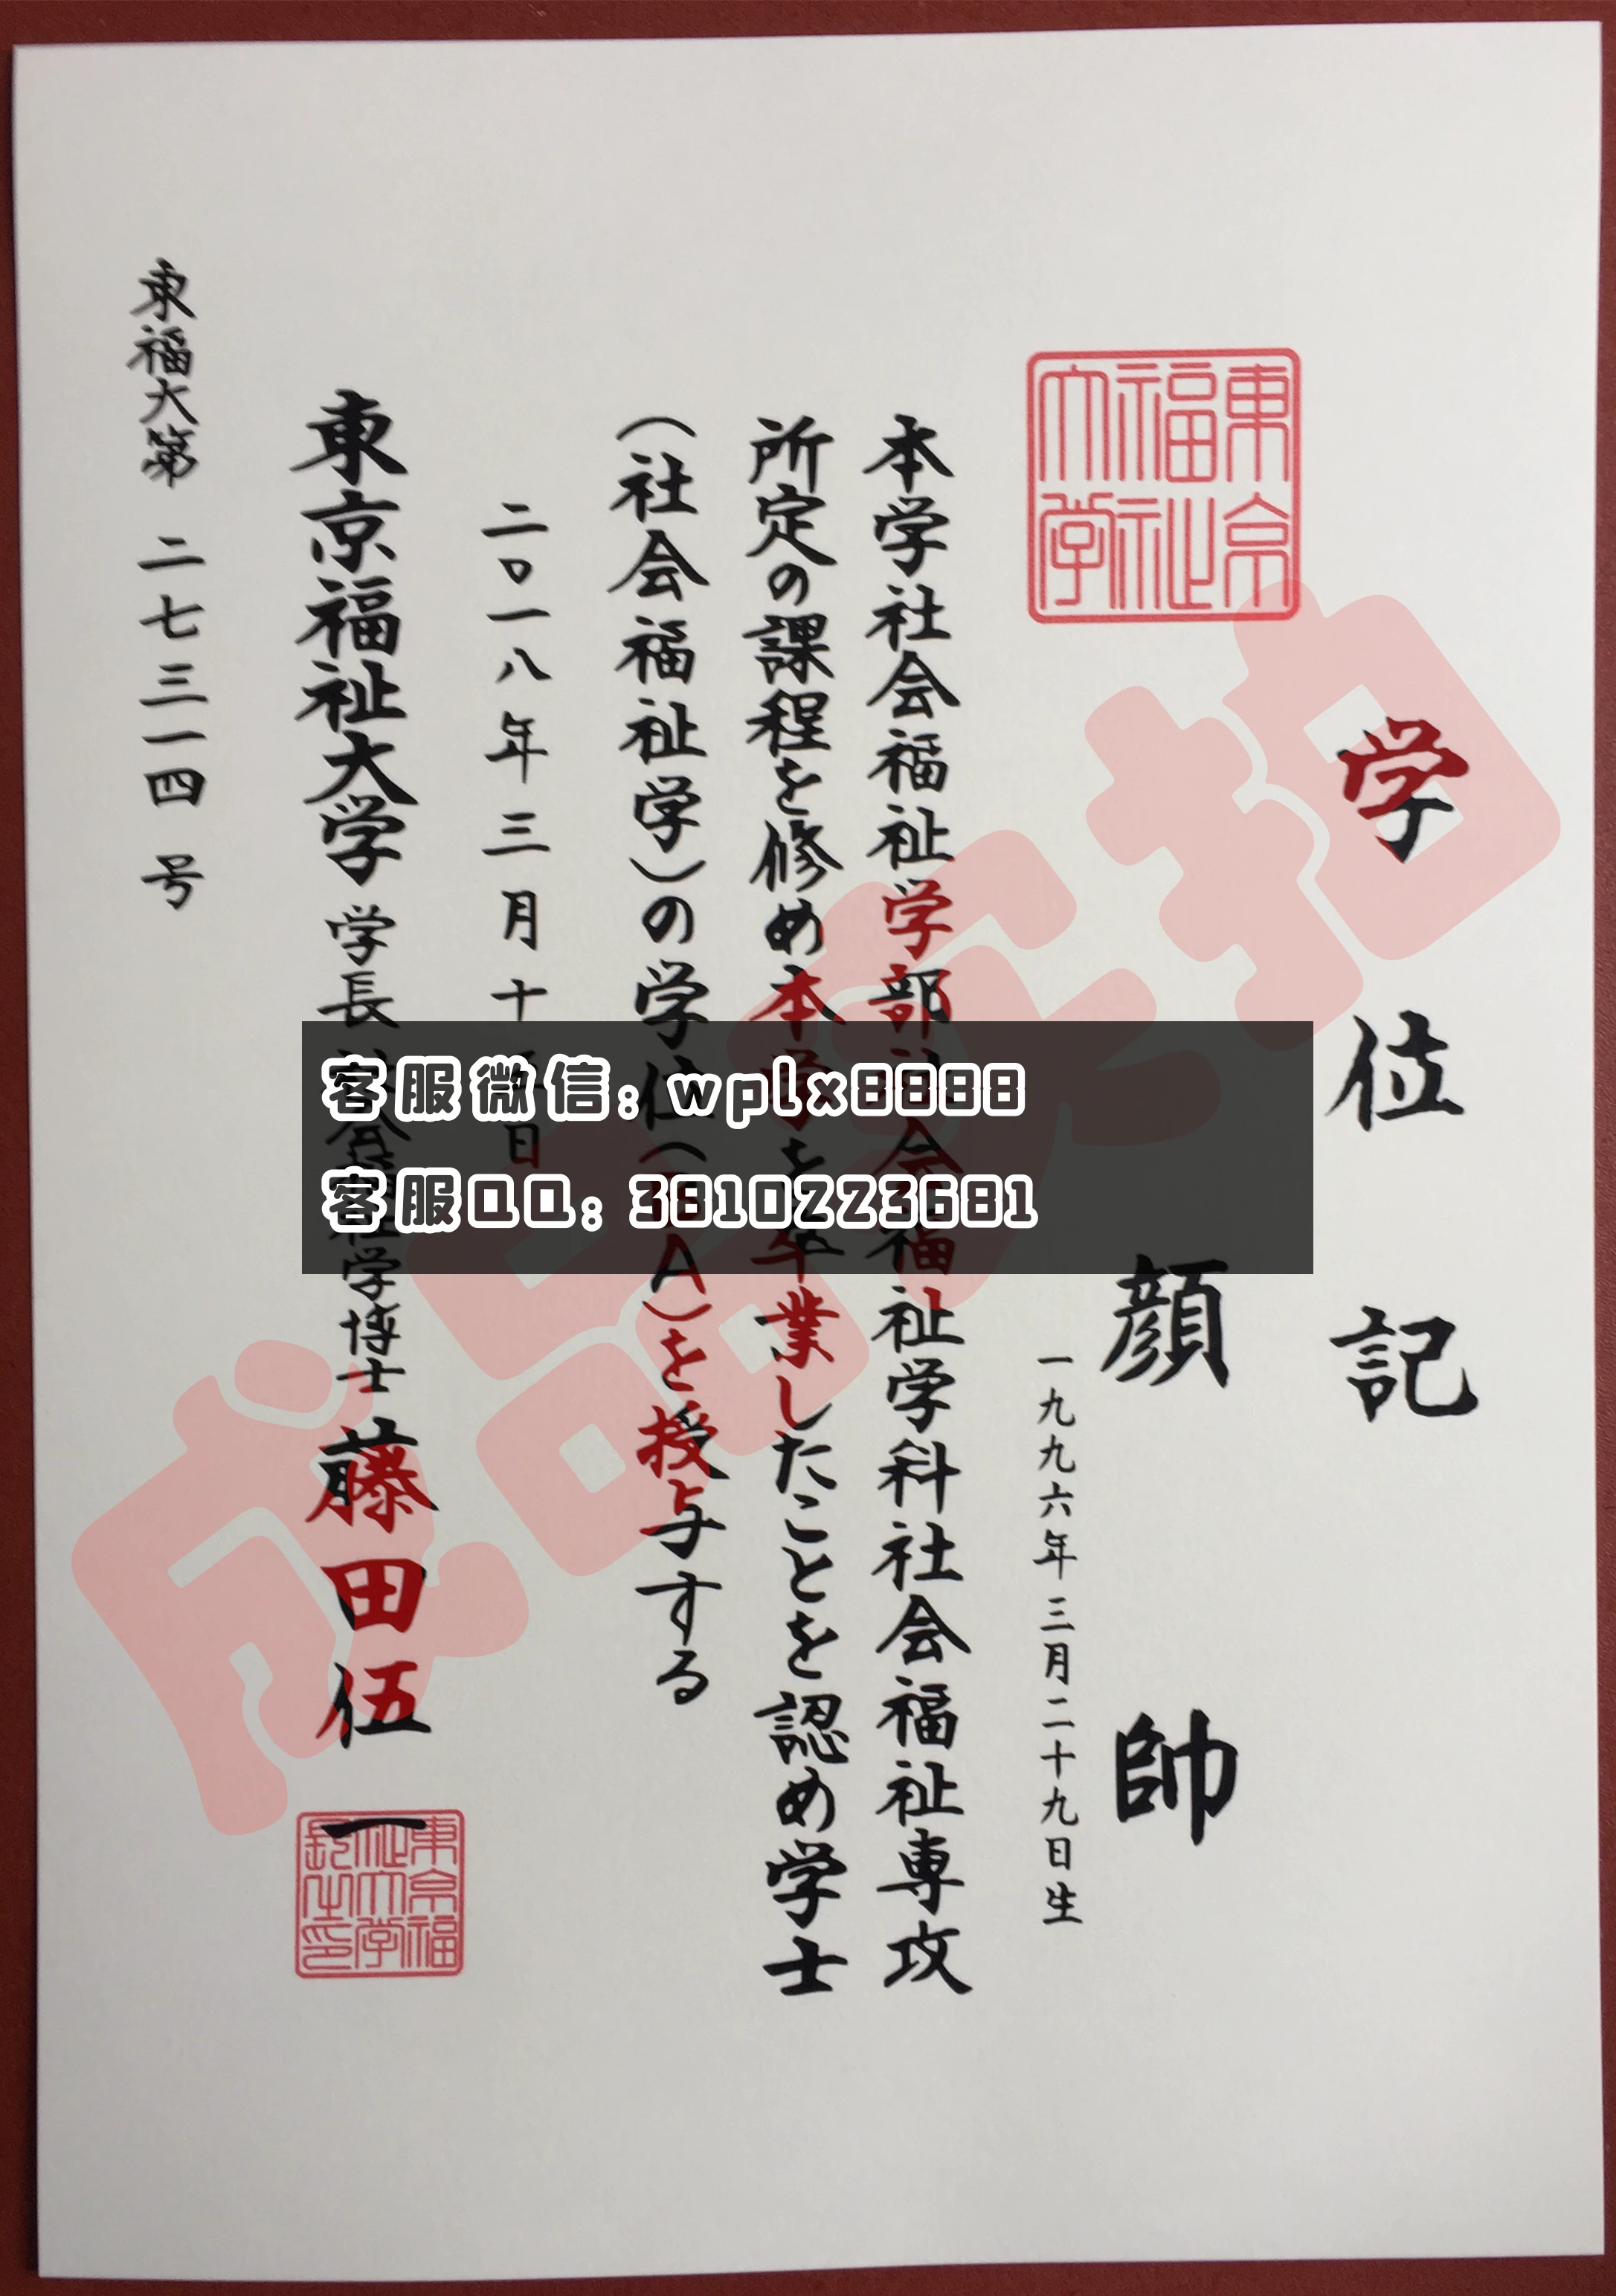 学位記
東京福祉大学
顔帥
一九九六年三月二十九日生
本学社会福祉学部社会福祉学科社会福祉専攻
所定の課程を修め本学を卒業したことを認め学士
(社会福祉学)の学位(BA)を授与する
二〇一八年三月十 日
東京福祉大学 学長 社会福祉学博士 藤田伍一
東京福祉大学長之印
東福大第 二七三一四 号
成品实拍
客服微信: wplx8888
客服QQ: 3810223681